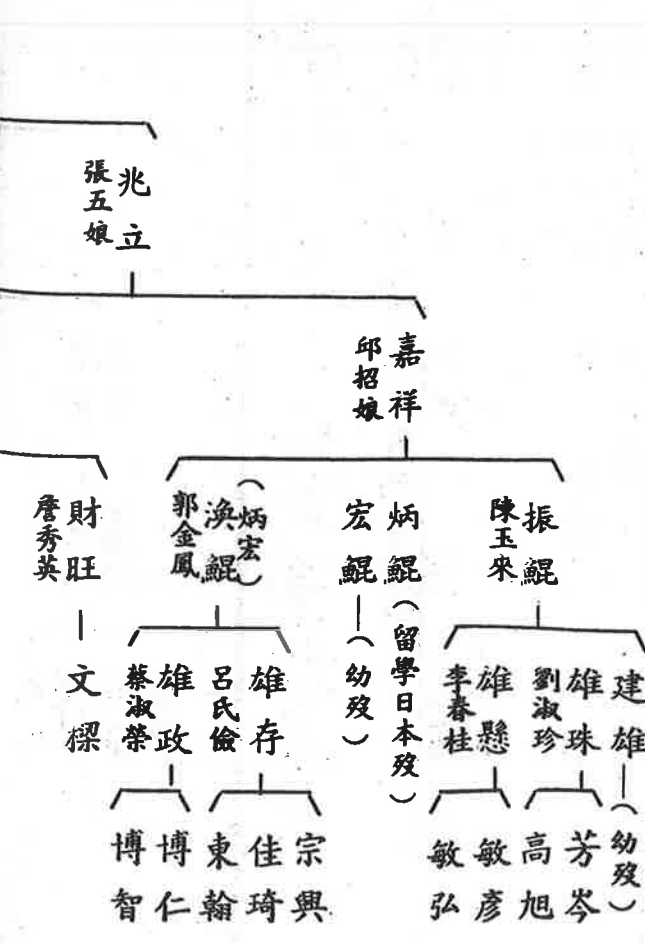 兆立
張五娘
嘉祥
邱招娘
振鯤
陳玉來
炳鯤（留學日本歿）
宏鯤（幼歿）
（炳宏）
渙鯤
郭金鳳
財旺
詹秀英
建雄（幼歿）
雄珠
劉淑珍
雄懸
李春桂
雄存
呂氏儉
雄政
蔡淑榮
文樑
芳岑
高旭
敏彥
敏弘
宗興
佳琦
東翰
博仁
博智